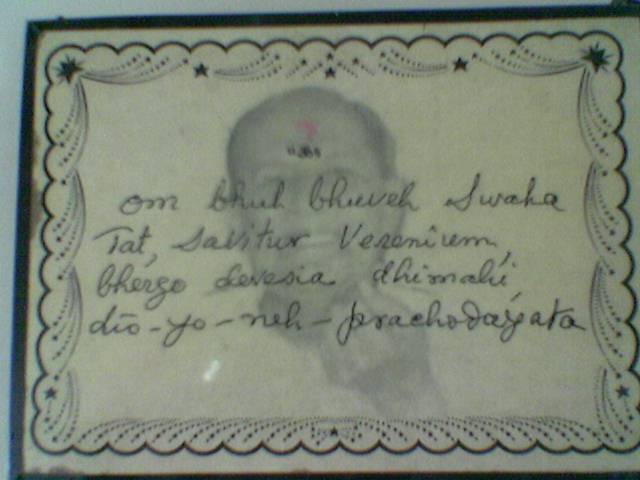 om bhuh bhuveh Swaha
Tat, Savitur Verenium,
bhergo devesia dhimahi
dio-yo-neh-prachodayata